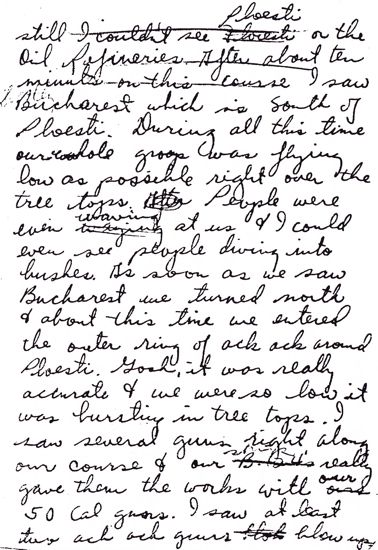 Ploesti
still I couldn't see Ploesti or the
Oil Refineries. After about ten
minutes on this course I saw
Bucharest which is South of
Ploesti. During all this time
our whole group was flying
low as possible right over the
tree tops. People were
waving
even at us & I could
even see people diving into
bushes. As soon as we saw
Bucharest we turned north
& about this time we entered
the outer ring of ack ack around
Ploesti. Gosh, it was really
accurate & we were so low it
was bursting in tree tops. I
saw several guns right along
our course & our really
gave them the works with our
50 Cal guns. I saw at least
two ack ack guns blow up.